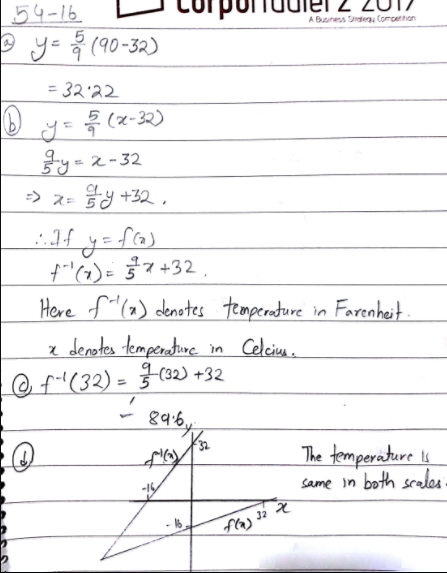 54-16
Corporaddlerz 2017
A Business Strategy Competition
(a) y = 5/9 (90-32)
= 32.22
(b) y = 5/9 (x-32)
9/5 y = x - 32
⇒ x = 9/5 y + 32.
∴ If y = f(x)
f⁻¹(x) = 9/5 x + 32.
Here f⁻¹(x) denotes temperature in Farenheit.
x denotes temperature in Celcius.
(c) f⁻¹(32) = 9/5 (32) + 32
= 89.6
(d)
y
32
f⁻¹(x)
-16
The temperature is
same in both scales.
-16
f(x)
32
x